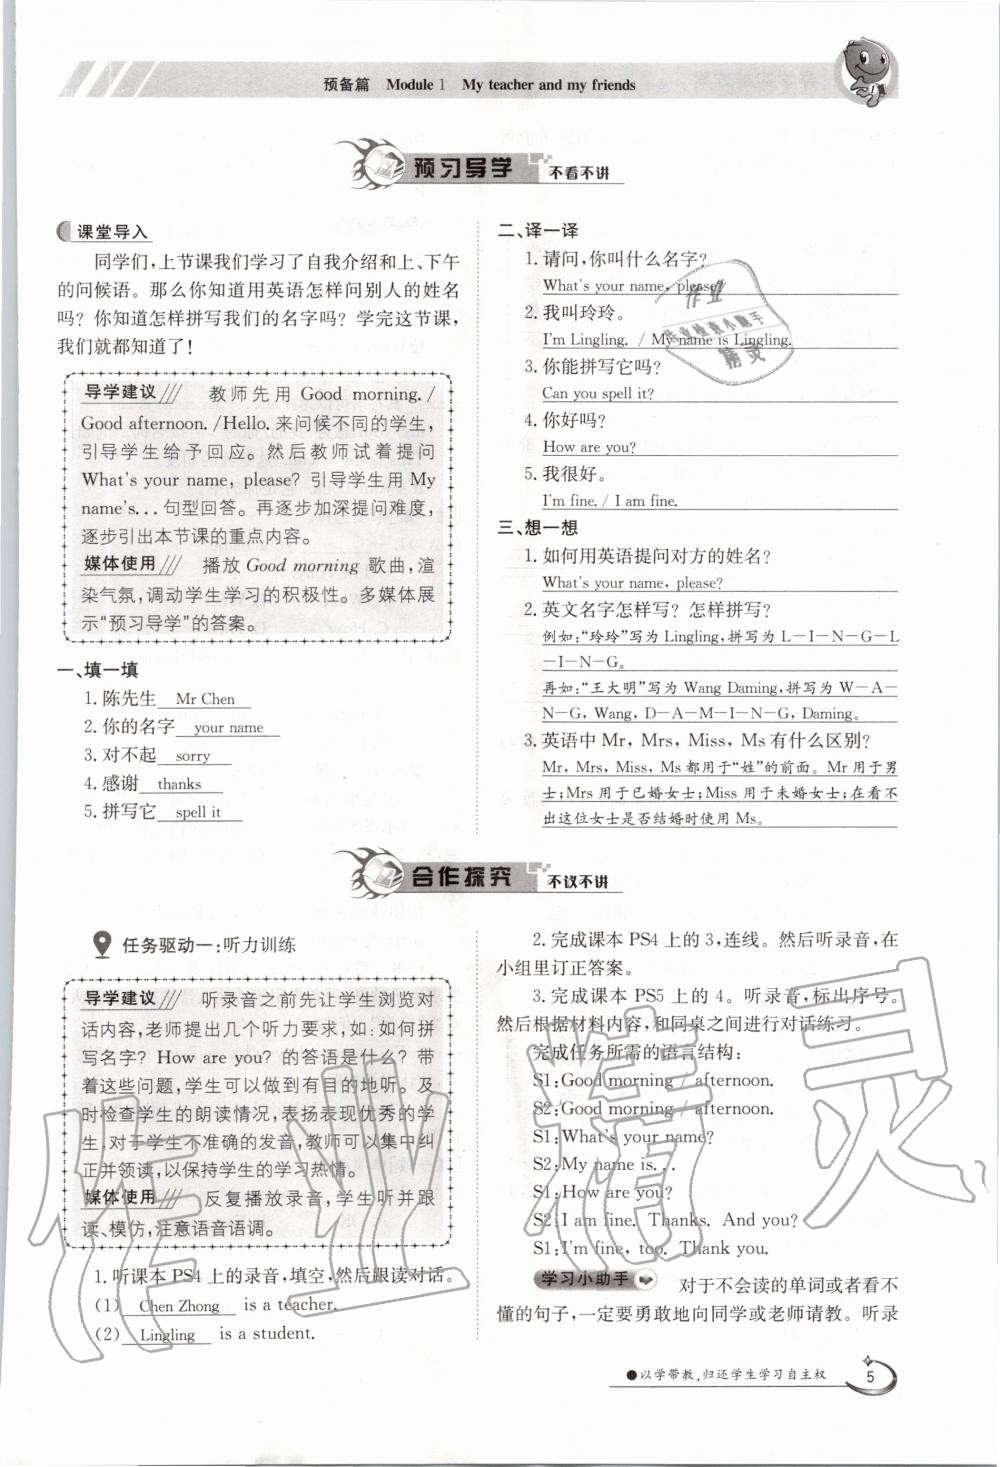 预备篇 Module 1 My teacher and my friends
预习导学 不看不讲
课堂导入
同学们,上节课我们学习了自我介绍和上、下午
的问候语。那么你知道用英语怎样问别人的姓名
吗? 你知道怎样拼写我们的名字吗? 学完这节课,
我们就都知道了!
导学建议/// 教师先用 Good morning. /
Good afternoon. /Hello. 来问候不同的学生,
引导学生给予回应。然后教师试着提问
What's your name, please? 引导学生用 My
name's... 句型回答。再逐步加深提问难度,
逐步引出本节课的重点内容。
媒体使用/// 播放 Good morning 歌曲,渲
染气氛,调动学生学习的积极性。多媒体展
示“预习导学”的答案。
一、填一填
1. 陈先生 Mr Chen
2. 你的名字 your name
3. 对不起 sorry
4. 感谢 thanks
5. 拼写它 spell it
二、译一译
1. 请问,你叫什么名字?
What's your name, please?
2. 我叫玲玲。
I'm Lingling. / My name is Lingling.
3. 你能拼写它吗?
Can you spell it?
4. 你好吗?
How are you?
5. 我很好。
I'm fine. / I am fine.
三、想一想
1. 如何用英语提问对方的姓名?
What's your name, please?
2. 英文名字怎样写? 怎样拼写?
例如:“玲玲”写为 Lingling,拼写为 L—I—N—G—L
—I—N—G。
再如:“王大明”写为 Wang Daming,拼写为 W—A—
N—G, Wang, D—A—M—I—N—G, Daming。
3. 英语中 Mr, Mrs, Miss, Ms 有什么区别?
Mr, Mrs, Miss, Ms 都用于“姓”的前面。Mr 用于男
士;Mrs 用于已婚女士;Miss 用于未婚女士;在看不
出这位女士是否结婚时使用 Ms。
作业
作业检查小助手
精灵
合作探究 不议不讲
任务驱动一:听力训练
导学建议/// 听录音之前先让学生浏览对
话内容,老师提出几个听力要求,如:如何拼
写名字? How are you? 的答语是什么? 带
着这些问题,学生可以做到有目的地听。及
时检查学生的朗读情况,表扬表现优秀的学
生,对于学生不准确的发音,教师可以集中纠
正并领读,以保持学生的学习热情。
媒体使用/// 反复播放录音,学生听并跟
读、模仿,注意语音语调。
1. 听课本 PS4 上的录音,填空,然后跟读对话。
(1) Chen Zhong is a teacher.
(2) Lingling is a student.
2. 完成课本 PS4 上的 3,连线。然后听录音,在
小组里订正答案。
3. 完成课本 PS5 上的 4。听录音,标出序号。
然后根据材料内容,和同桌之间进行对话练习。
完成任务所需的语言结构:
S1:Good morning / afternoon.
S2:Good morning / afternoon.
S1:What's your name?
S2:My name is...
S1:How are you?
S2:I am fine. Thanks. And you?
S1:I'm fine, too. Thank you.
学习小助手 对于不会读的单词或者看不
懂的句子,一定要勇敢地向同学或老师请教。听录
作业精灵
●以学带教,归还学生学习自主权 5